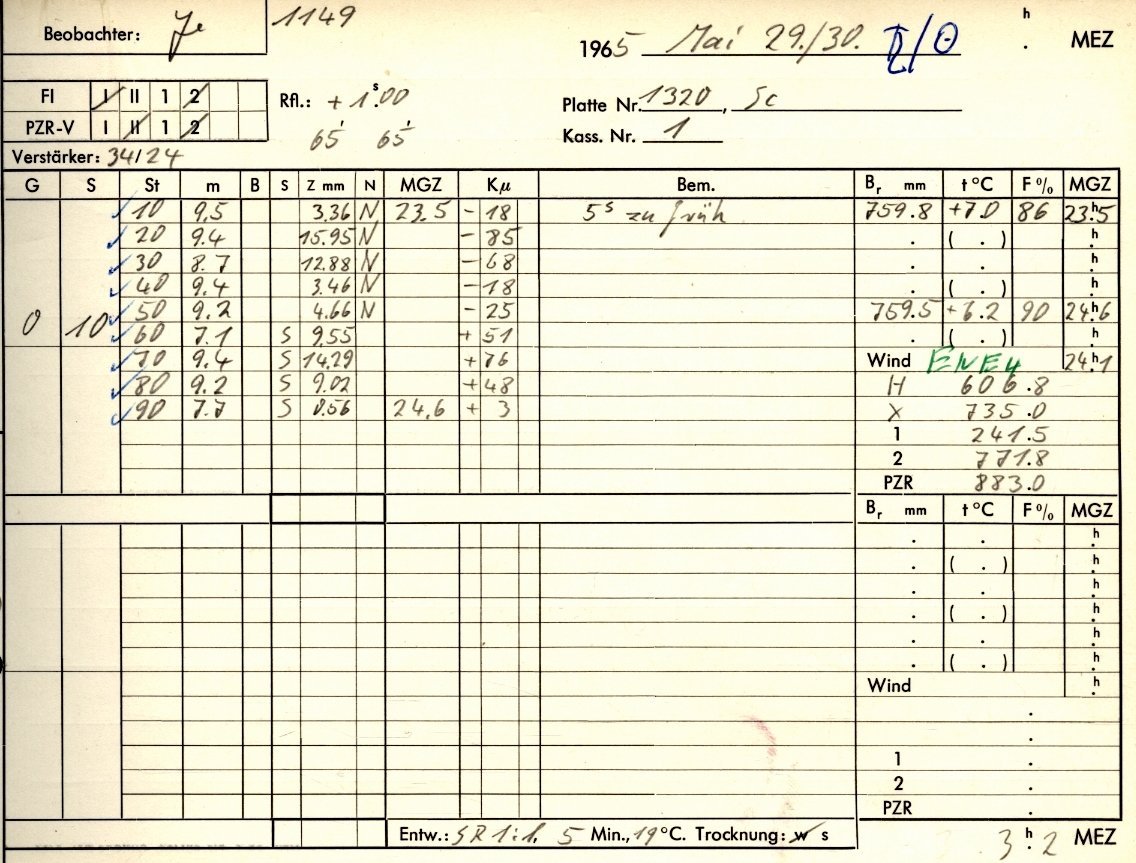 Beobachter: Je 1149
1965 Mai 29./30. h . MEZ
FI I II 1 2
PZR-V I II 1 2
Rfl.: + 1ˢ.00
65 65
Platte Nr. 1320, Sc
Kass. Nr. 1
Verstärker: 34/24
G S St m B S Z mm N MGZ Kµ Bem. Bᵣ mm t °C F % MGZ
10 9.5 3.36 N 23.5 - 18 5ˢ zu früh 759.8 +7.0 86 23ʰ.5
20 9.4 15.95 N - 85 . ( . ) h.
30 8.7 12.88 N - 68 . . h.
40 9.4 3.46 N - 18 . ( . ) h.
0 10 50 9.2 4.66 N - 25 759.5 +6.2 90 24ʰ.6
60 7.1 S 9.55 + 51 . ( . ) h.
70 9.4 S 14.29 + 76 Wind ENE 4 24ʰ.1
80 9.2 S 9.02 + 48 H 606.8
90 7.7 S 0.56 24.6 + 3 X 735.0
1 241.5
2 771.8
PZR 883.0
Bᵣ mm t °C F % MGZ
. . h.
. ( . ) h.
. . h.
. ( . ) h.
. . h.
. ( . ) h.
Wind h.
.
.
1 .
2 .
PZR .
Entw.: SR 1:1, 5 Min., 19 °C. Trocknung: w s
3ʰ.2 MEZ